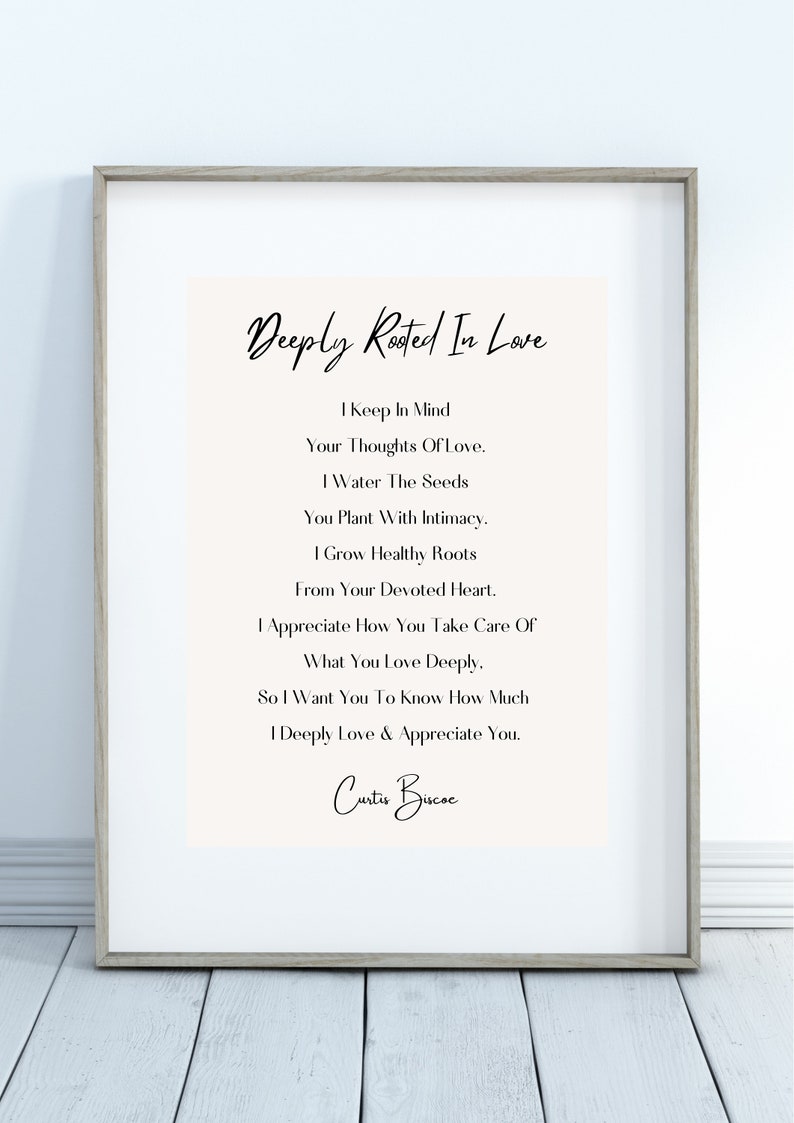 Deeply Rooted In Love
I Keep In Mind
Your Thoughts Of Love.
I Water The Seeds
You Plant With Intimacy.
I Grow Healthy Roots
From Your Devoted Heart.
I Appreciate How You Take Care Of
What You Love Deeply,
So I Want You To Know How Much
I Deeply Love & Appreciate You.
Curtis Biscoe